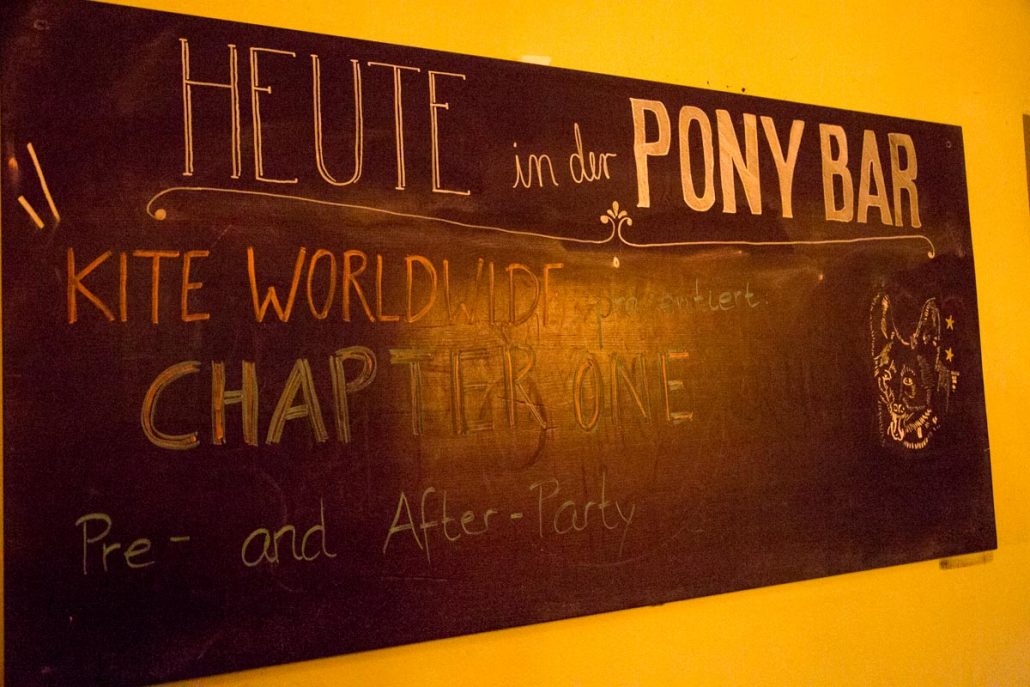 HEUTE in der PONY BAR
KITE WORLDWIDE präsentiert:
CHAPTER ONE
Pre- and After-Party